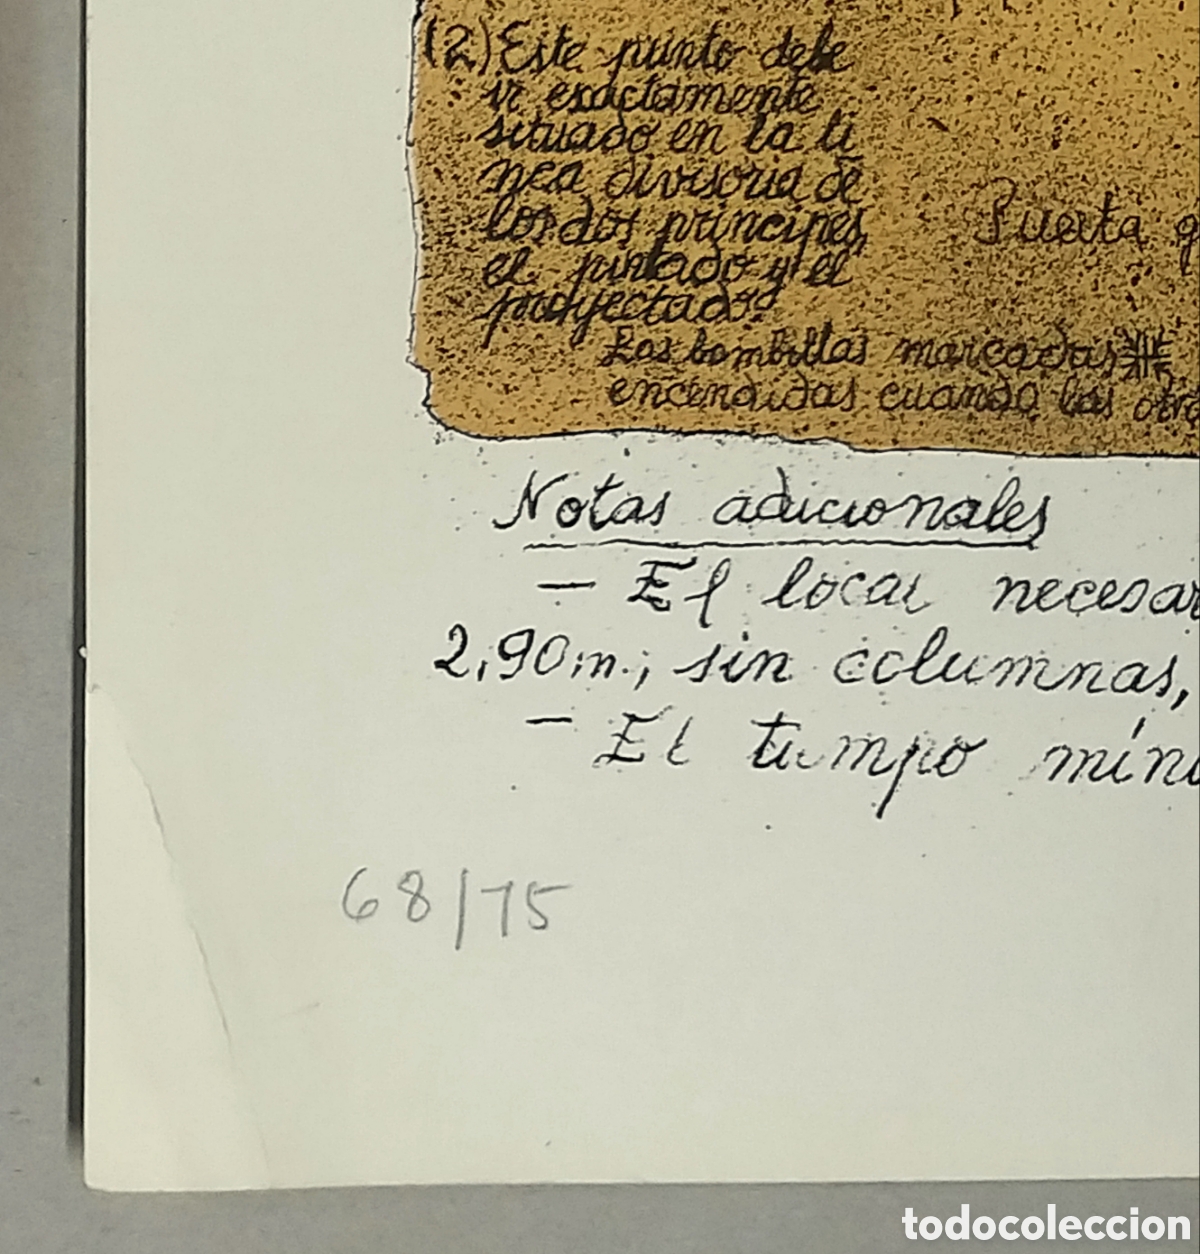 (2) Este punto debe
ir exactamente
situado en la li
nea divisoria de
los dos principes,
el pintado y el
proyectado.
Puerta q
Las bombillas marcadas
encendidas cuando las otra
Notas adicionales
- El local necesar
2,90 m.; sin columnas,
- El tiempo míni
68/75
todocoleccion